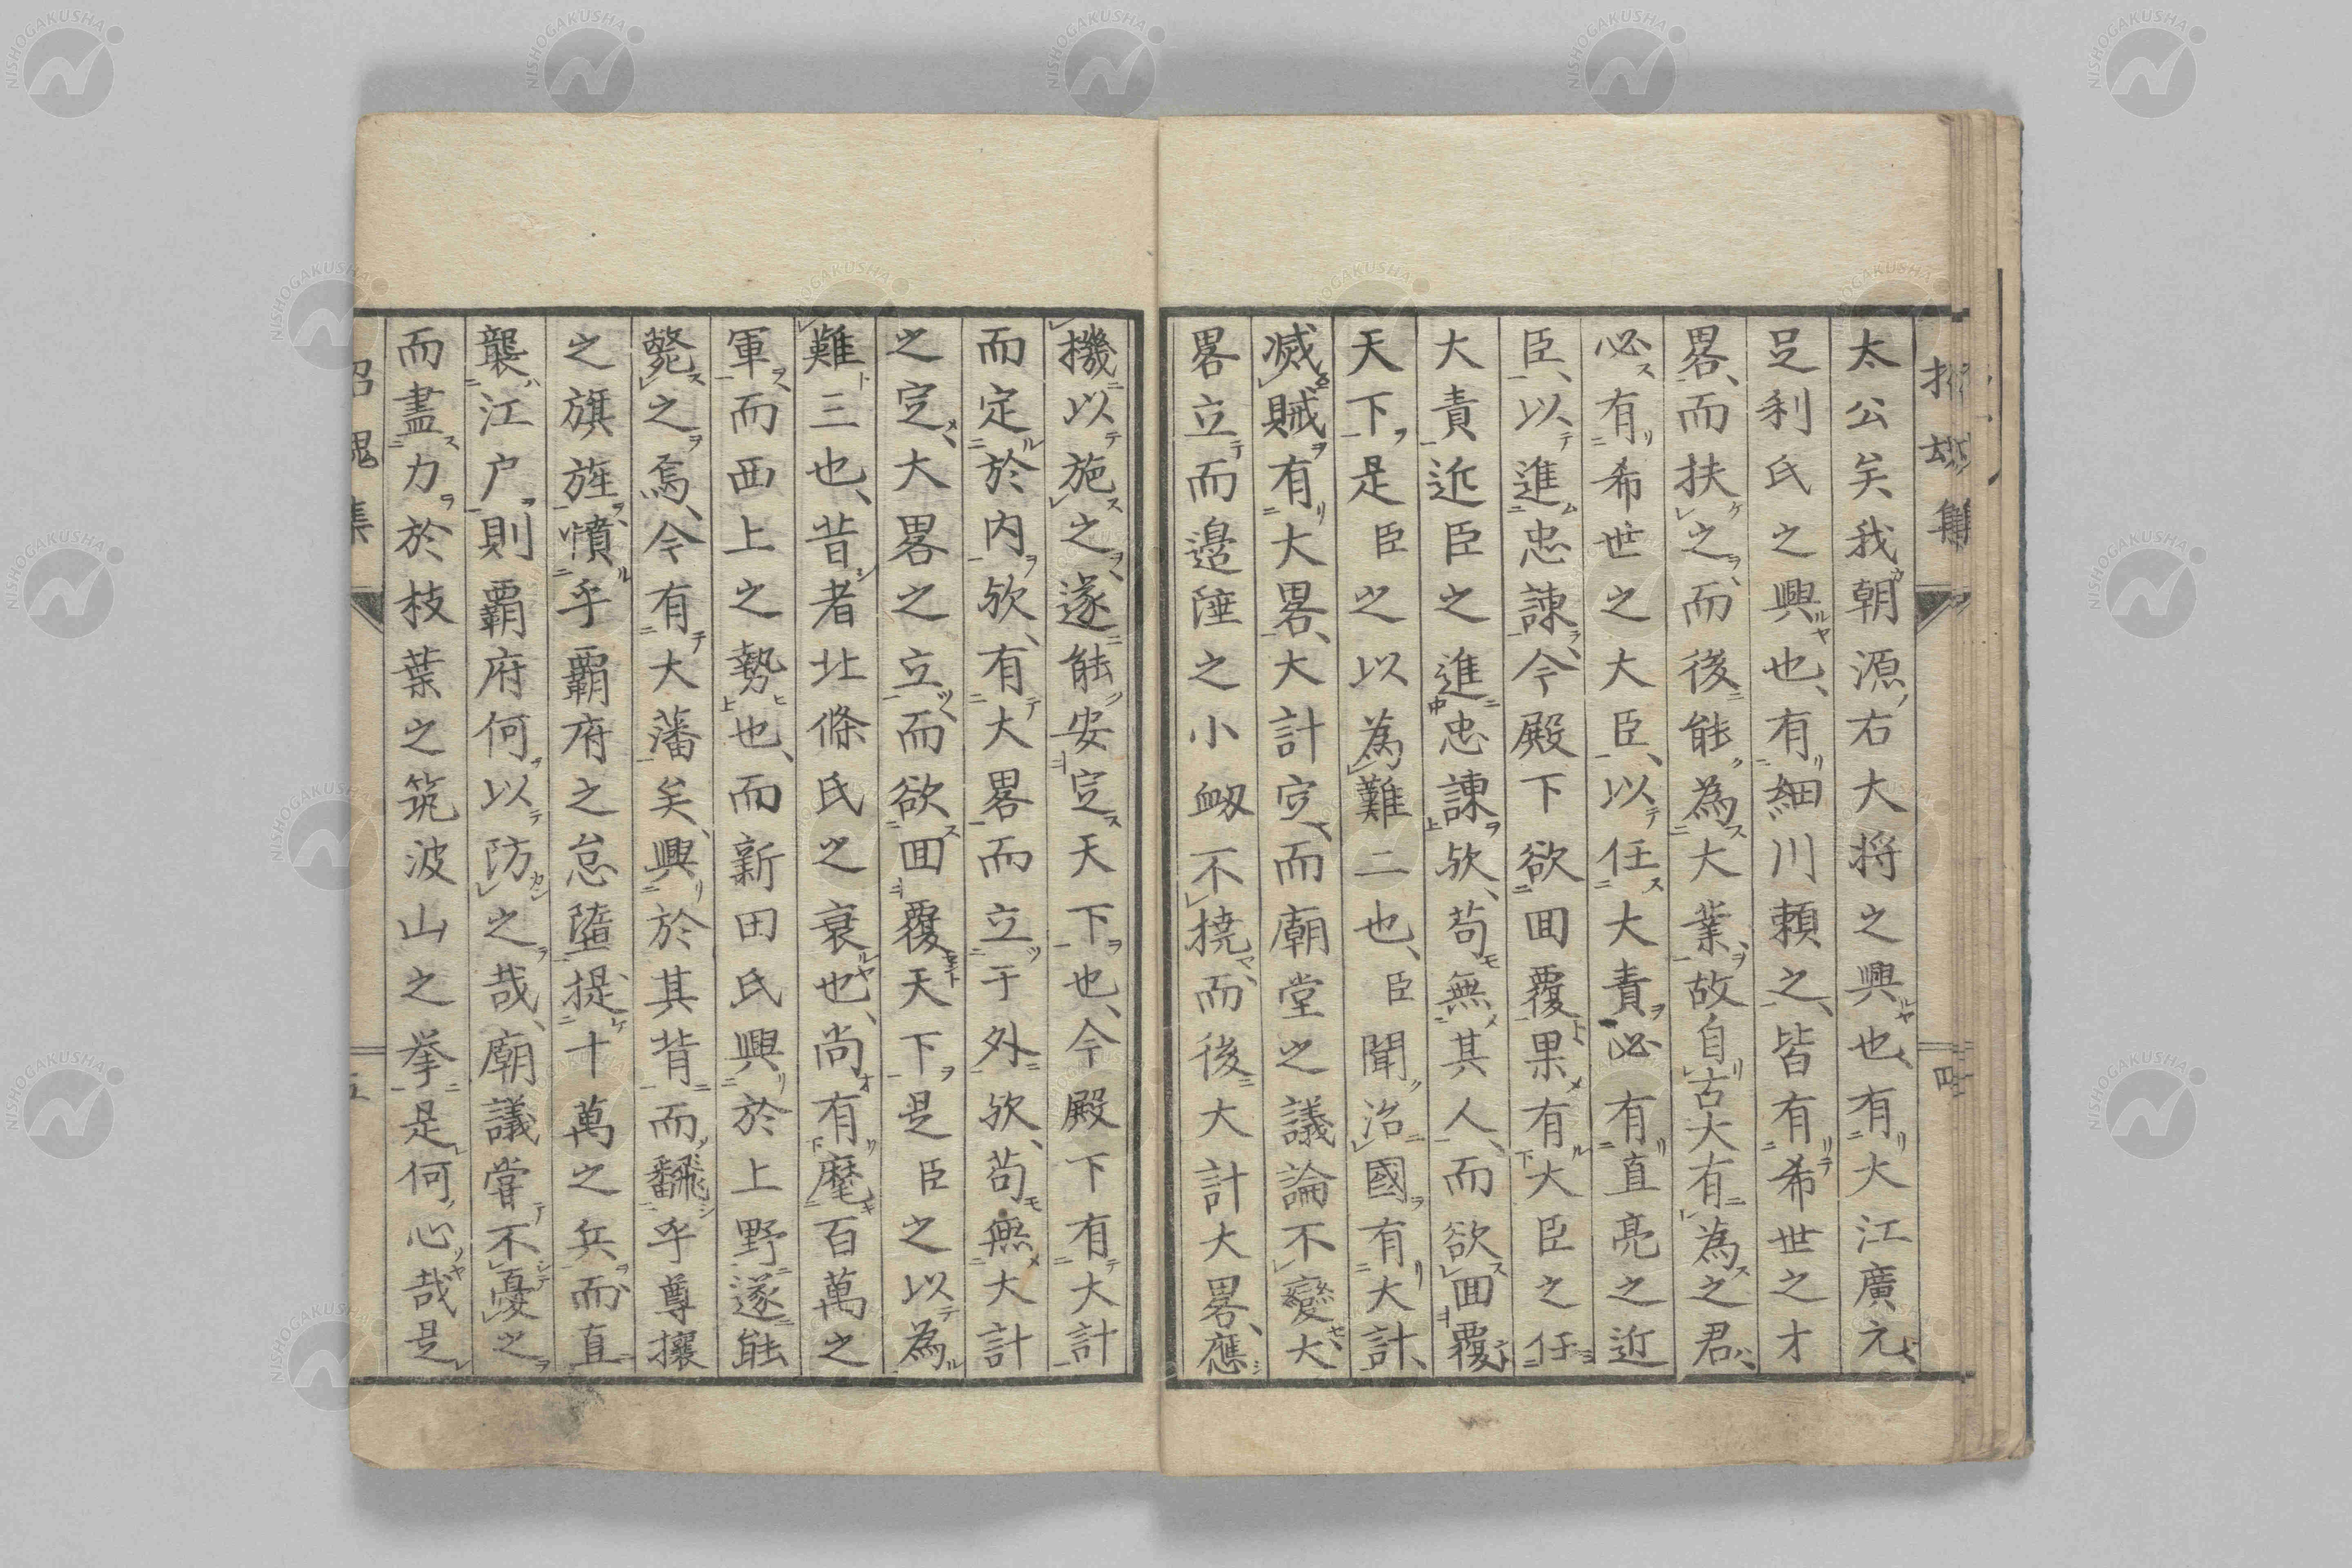 太公矣我朝源右大将之興也、有大江廣元、
足利氏之興也、有細川頼之、皆有希世之才
畧、而扶之、而後能為大業、故自古大有為之君、
必有希世之大臣、以任大責、必有直亮之近
臣、以進忠諫、今殿下欲回覆果有大臣之任
大責近臣之進忠諫欤、苟無其人、而欲回覆
天下、是臣之以為難二也、臣聞治國有大計、
滅賊有大畧、大計定、而廟堂之議論不變、大
畧立而邉陲之小衂不撓、而後大計大畧、應
機以施之、遂能安定天下也、今殿下有大計
而定於内欤、有大畧而立于外欤、苟無大計
之定、大畧之立、而欲回覆天下、是臣之以為
難三也、昔者北條氏之衰也、尚有麾百萬之
軍、而西上之勢也、而新田氏興於上野遂能
斃之焉、今有大藩矣、興於其背而翻乎尊攘
之旗旌、憤乎覇府之怠墮、提十萬之兵、而直
襲江户、則覇府何以防之哉、廟議嘗不憂之
而盡力於枝葉之筑波山之挙是何心哉是
招魂集
四
NISHOGAKUSHA